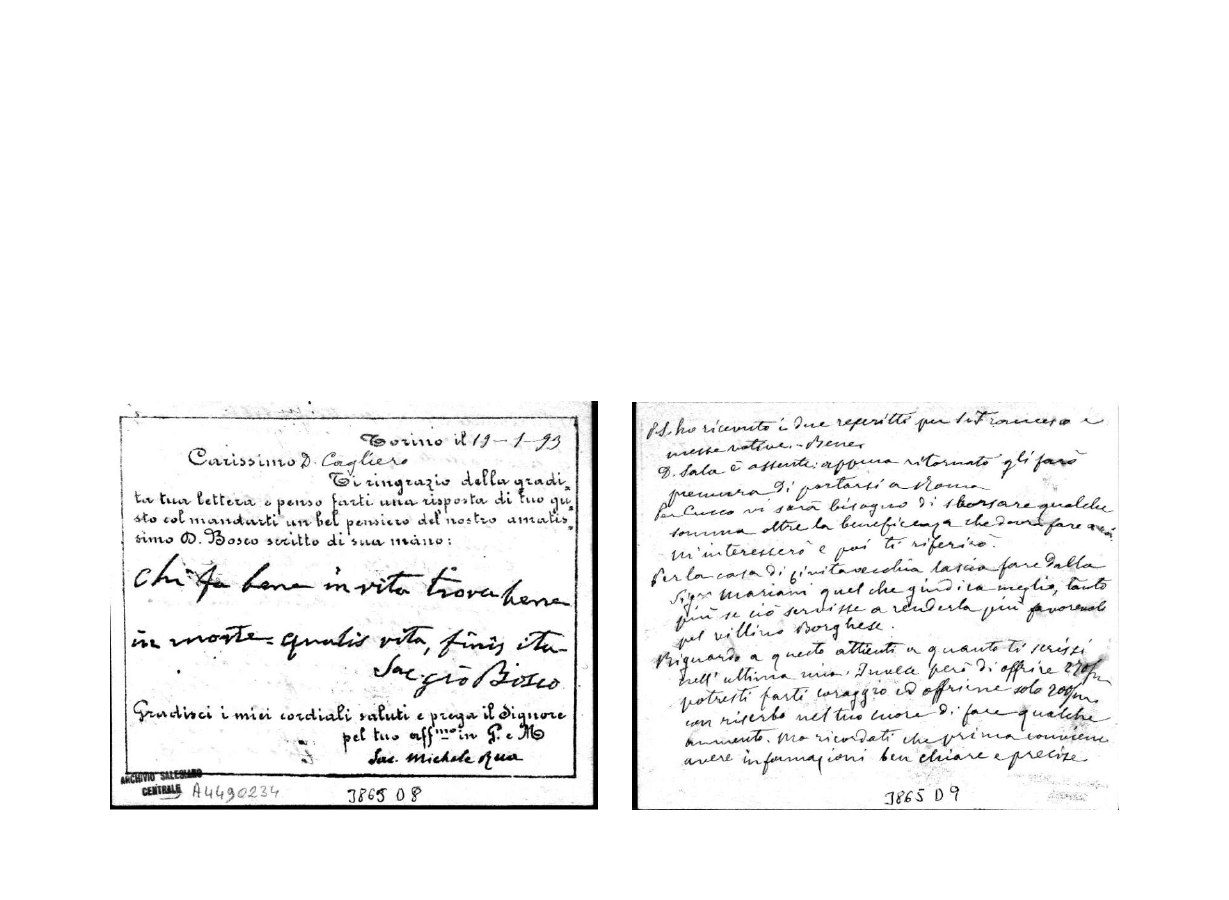 Torino il 19-1-93
Carissimo D. Cagliero
Ti ringrazio della gradi=
ta tua lettera e penso farti una risposta di tuo gu=
sto col mandarti un bel pensiero del nostro amatis=
simo D. Bosco scritto di sua mano:
Chi fa bene in vita trova bene
in morte = qualis vita, finis ita -
Sac Gio Bosco
Gradisci i miei cordiali saluti e prega il Signore
pel tuo aff.mo in G. e M
Sac. Michele Rua
ARCHIVIO SALESIANO
CENTRALE A4490234
3865 D8
PS. ho ricevuto i due rescritti per S. Francesco e
messe votive. - Bene
D. Sala è assente: appena ritornato gli farò
premura di portarsi a Roma
Per Cucco vi sarà bisogno di sborsare qualche
somma oltre la beneficenza che dovrà fare
M'interesserò e poi ti riferirò.
Per la casa di Civitavecchia lascia fare dalla
Sigra Mariani quel che giudica meglio, tanto
più se ciò servisse a renderla più favorevole
pel villino Borghese.
Riguardo a questo attienti a quanto ti scrissi
nell'ultima mia. Invece però di offrire
potresti farti coraggio ed offrirne solo
con riserbo nel tuo cuore di fare qualche
aumento. Ma ricordati che prima conviene
avere informazioni ben chiare e precise
3865 D9